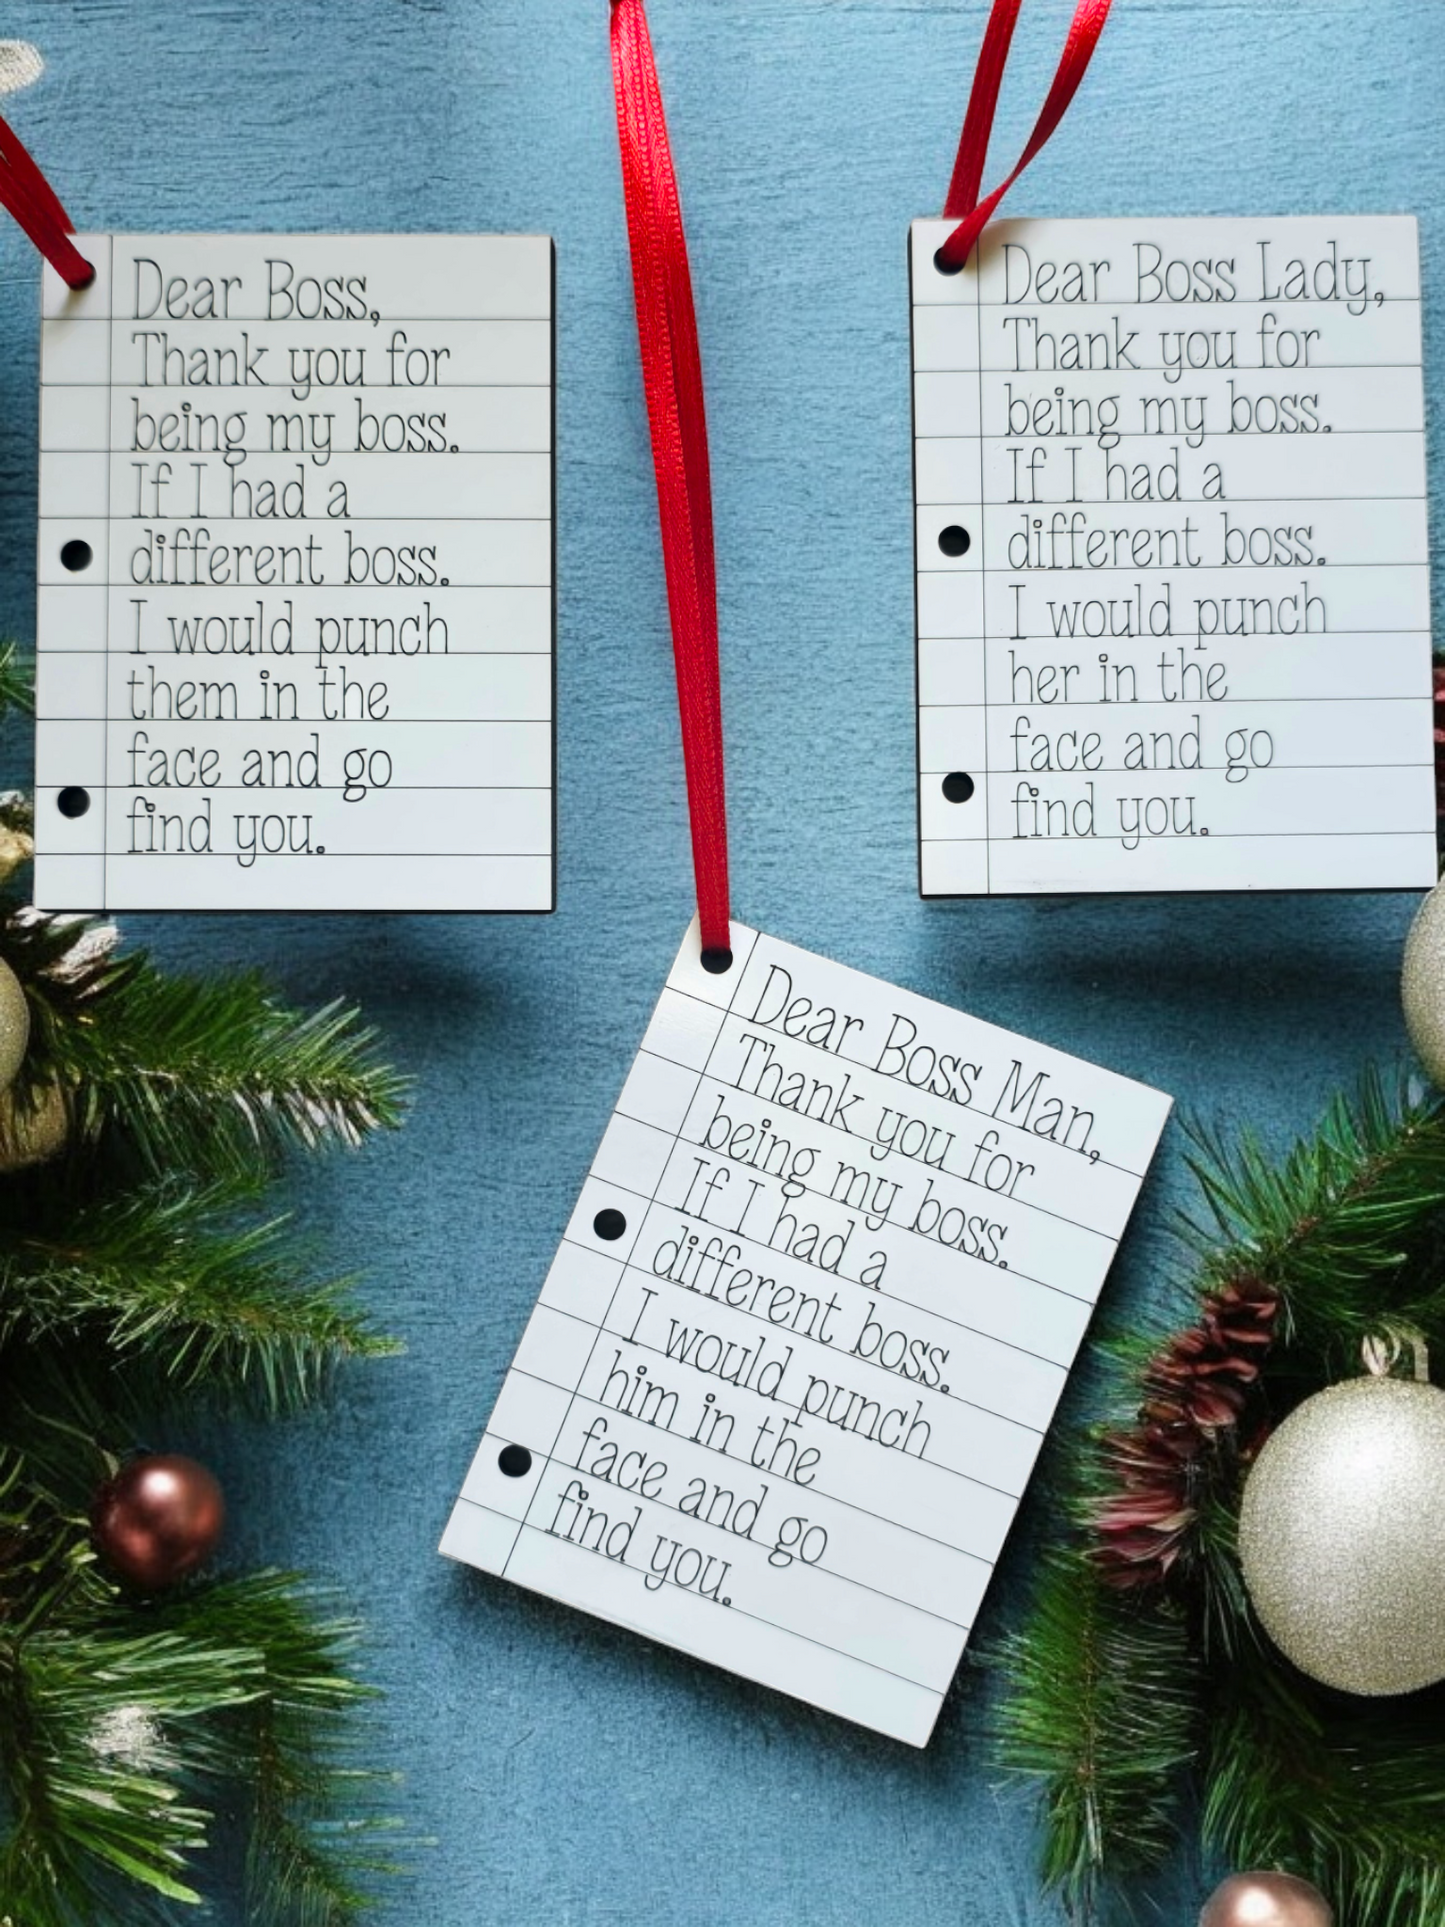 Dear Boss,
Thank you for
being my boss.
If I had a
different boss.
I would punch
them in the
face and go
find you.
Dear Boss Lady,
Thank you for
being my boss.
If I had a
different boss.
I would punch
her in the
face and go
find you.
Dear Boss Man,
Thank you for
being my boss.
If I had a
different boss.
I would punch
him in the
face and go
find you.